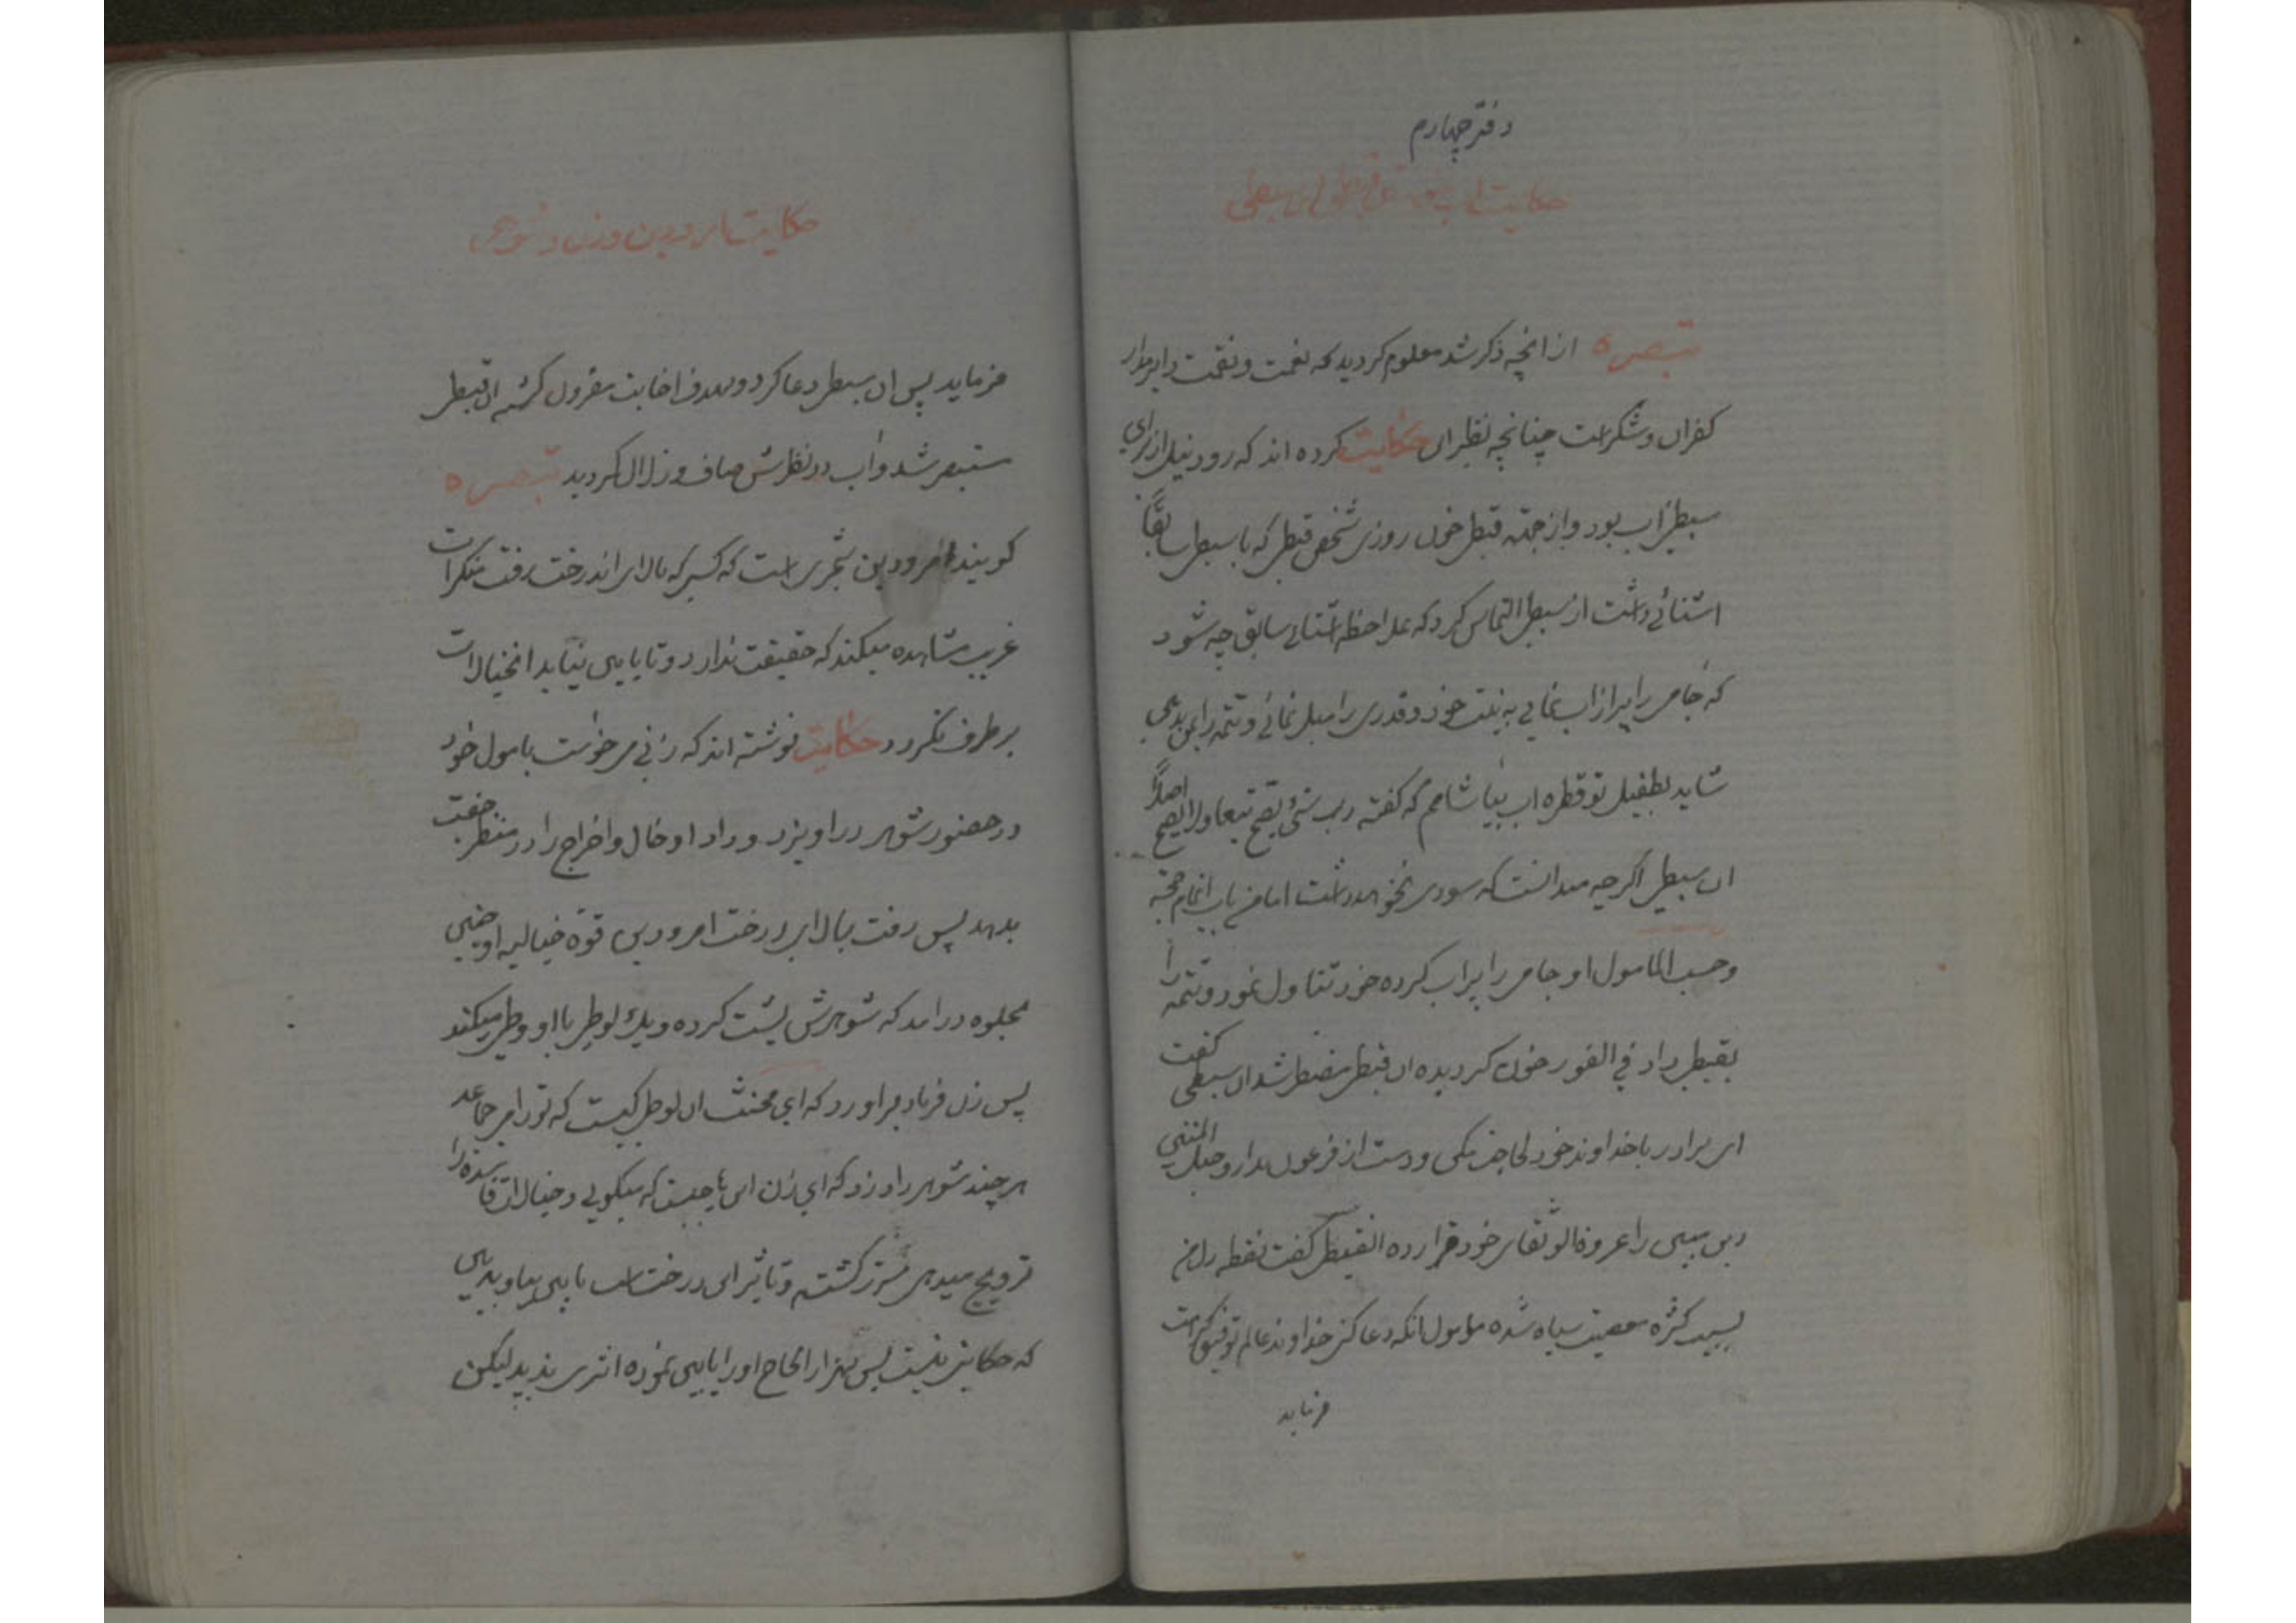 دفتر چهارم
حکایت سبطی
تبصره از انچه ذکر شد معلوم کردید که نعمت و نقمت دایر مدار
کفران و شکر است چنانچه نظیر ان حکایت کرده اند که رود نیل از برای
سبطی اب بود و از جهته قبطی خون روزی شخص قبطی که با سبطی سابقاً
اشنائے داشت از سبطی التماس کرد که ملاحظه اشنائے سابق چه شود
که جامی را پر از اب نمایی به نیت خود و قدری را میل نمائے و تتمه را بمن بدهی
شاید بطفیل تو قطره اب بیاشامم که گفته رب شئ یصح تبعا ولا یصح اصلاً
ان سبطی اکرچه میدانست که سودی نخواهد داشت اما من باب اتمام حجته
و حسب المامول او جامی را پر اب کرده خود تناول نمود و تتمه را
بقبطی داد في الفور خون کردیده ان قبطی مضطر شد ان سبطی کفت
ای برادر با خداوند خود لجاجت مکن و دست از فرعون بدار و حبل المتین
دین مبین را عروة الوثقای خود قرار ده القبطی کفت نقطه دل من
بسبب کثرة معصیت سیاه شده مامول انکه دعا کنی خداوند عالم توفیق کرامت
فرماید
حکایت امرودبن و زن و شوهر
فرماید پس ان سبطی دعا کرد و بهدف اجابت مقرون کشته ان قبطی
مستبصر شد و اب در نظرش صاف و زلال کردید تبصره
کویند امرودبن شجری است که کسی که بالای اندرخت رفت منکرات
غریب مشاهده میکند که حقیقت ندارد و تا پایین نیاید انخیالات
برطرف نکردد حکایت نوشته اند که زنی می خواست با مول خود
در حضور شوهر در اویزد و داد ادخال و اخراج را در منظر جفت
بدهد پس رفت بالای درخت امرودبن قوة خیالیه او چنین
بجلوه درامد که شوهرش پشت کرده و یك لوطی با او وطی میکند
پس زن فریاد براورد که ای مخنث ان لوطی کیست که تو را می جماعد
هر چند شوهر داد زد که ای زن این چیست که میکویی و خیالات فاسده را
ترویج میدهی کشته و تاثیر ان درخت است پایین بیا و ببین
که حکایتی نیست پس بهزار الحاح او را پایین نموده اثری ندید لیکن